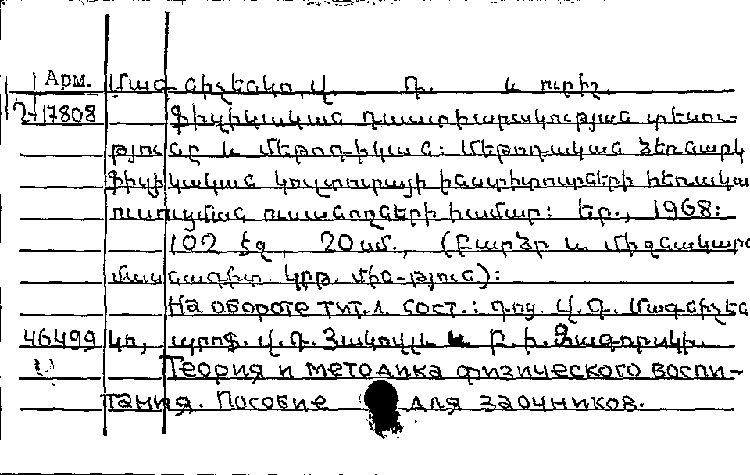 Арм. Մատվիշենկո Վ. Դ. և ուրիշ.
2-17808 Ֆիզիկական դաստիարակության տեսու-
թյունը և մեթոդիկան: Մեթոդական ձեռնարկ
Ֆիզիկական կուլտուրայի ինստիտուտների հեռակա
ուսուցման ուսանողների համար: Եր., 1968:
102 էջ, 20 սմ., (Բարձր և միջնակարգ
մասնագիտ. կրթ. մին-թյուն):
На обороте тит. л. сост.: դոց. Վ. Դ.
46499 կո, պրոֆ. Վ. Դ. և Բ. Ի.
Теория и методика физического воспи-
тания. Пособие для заочников.